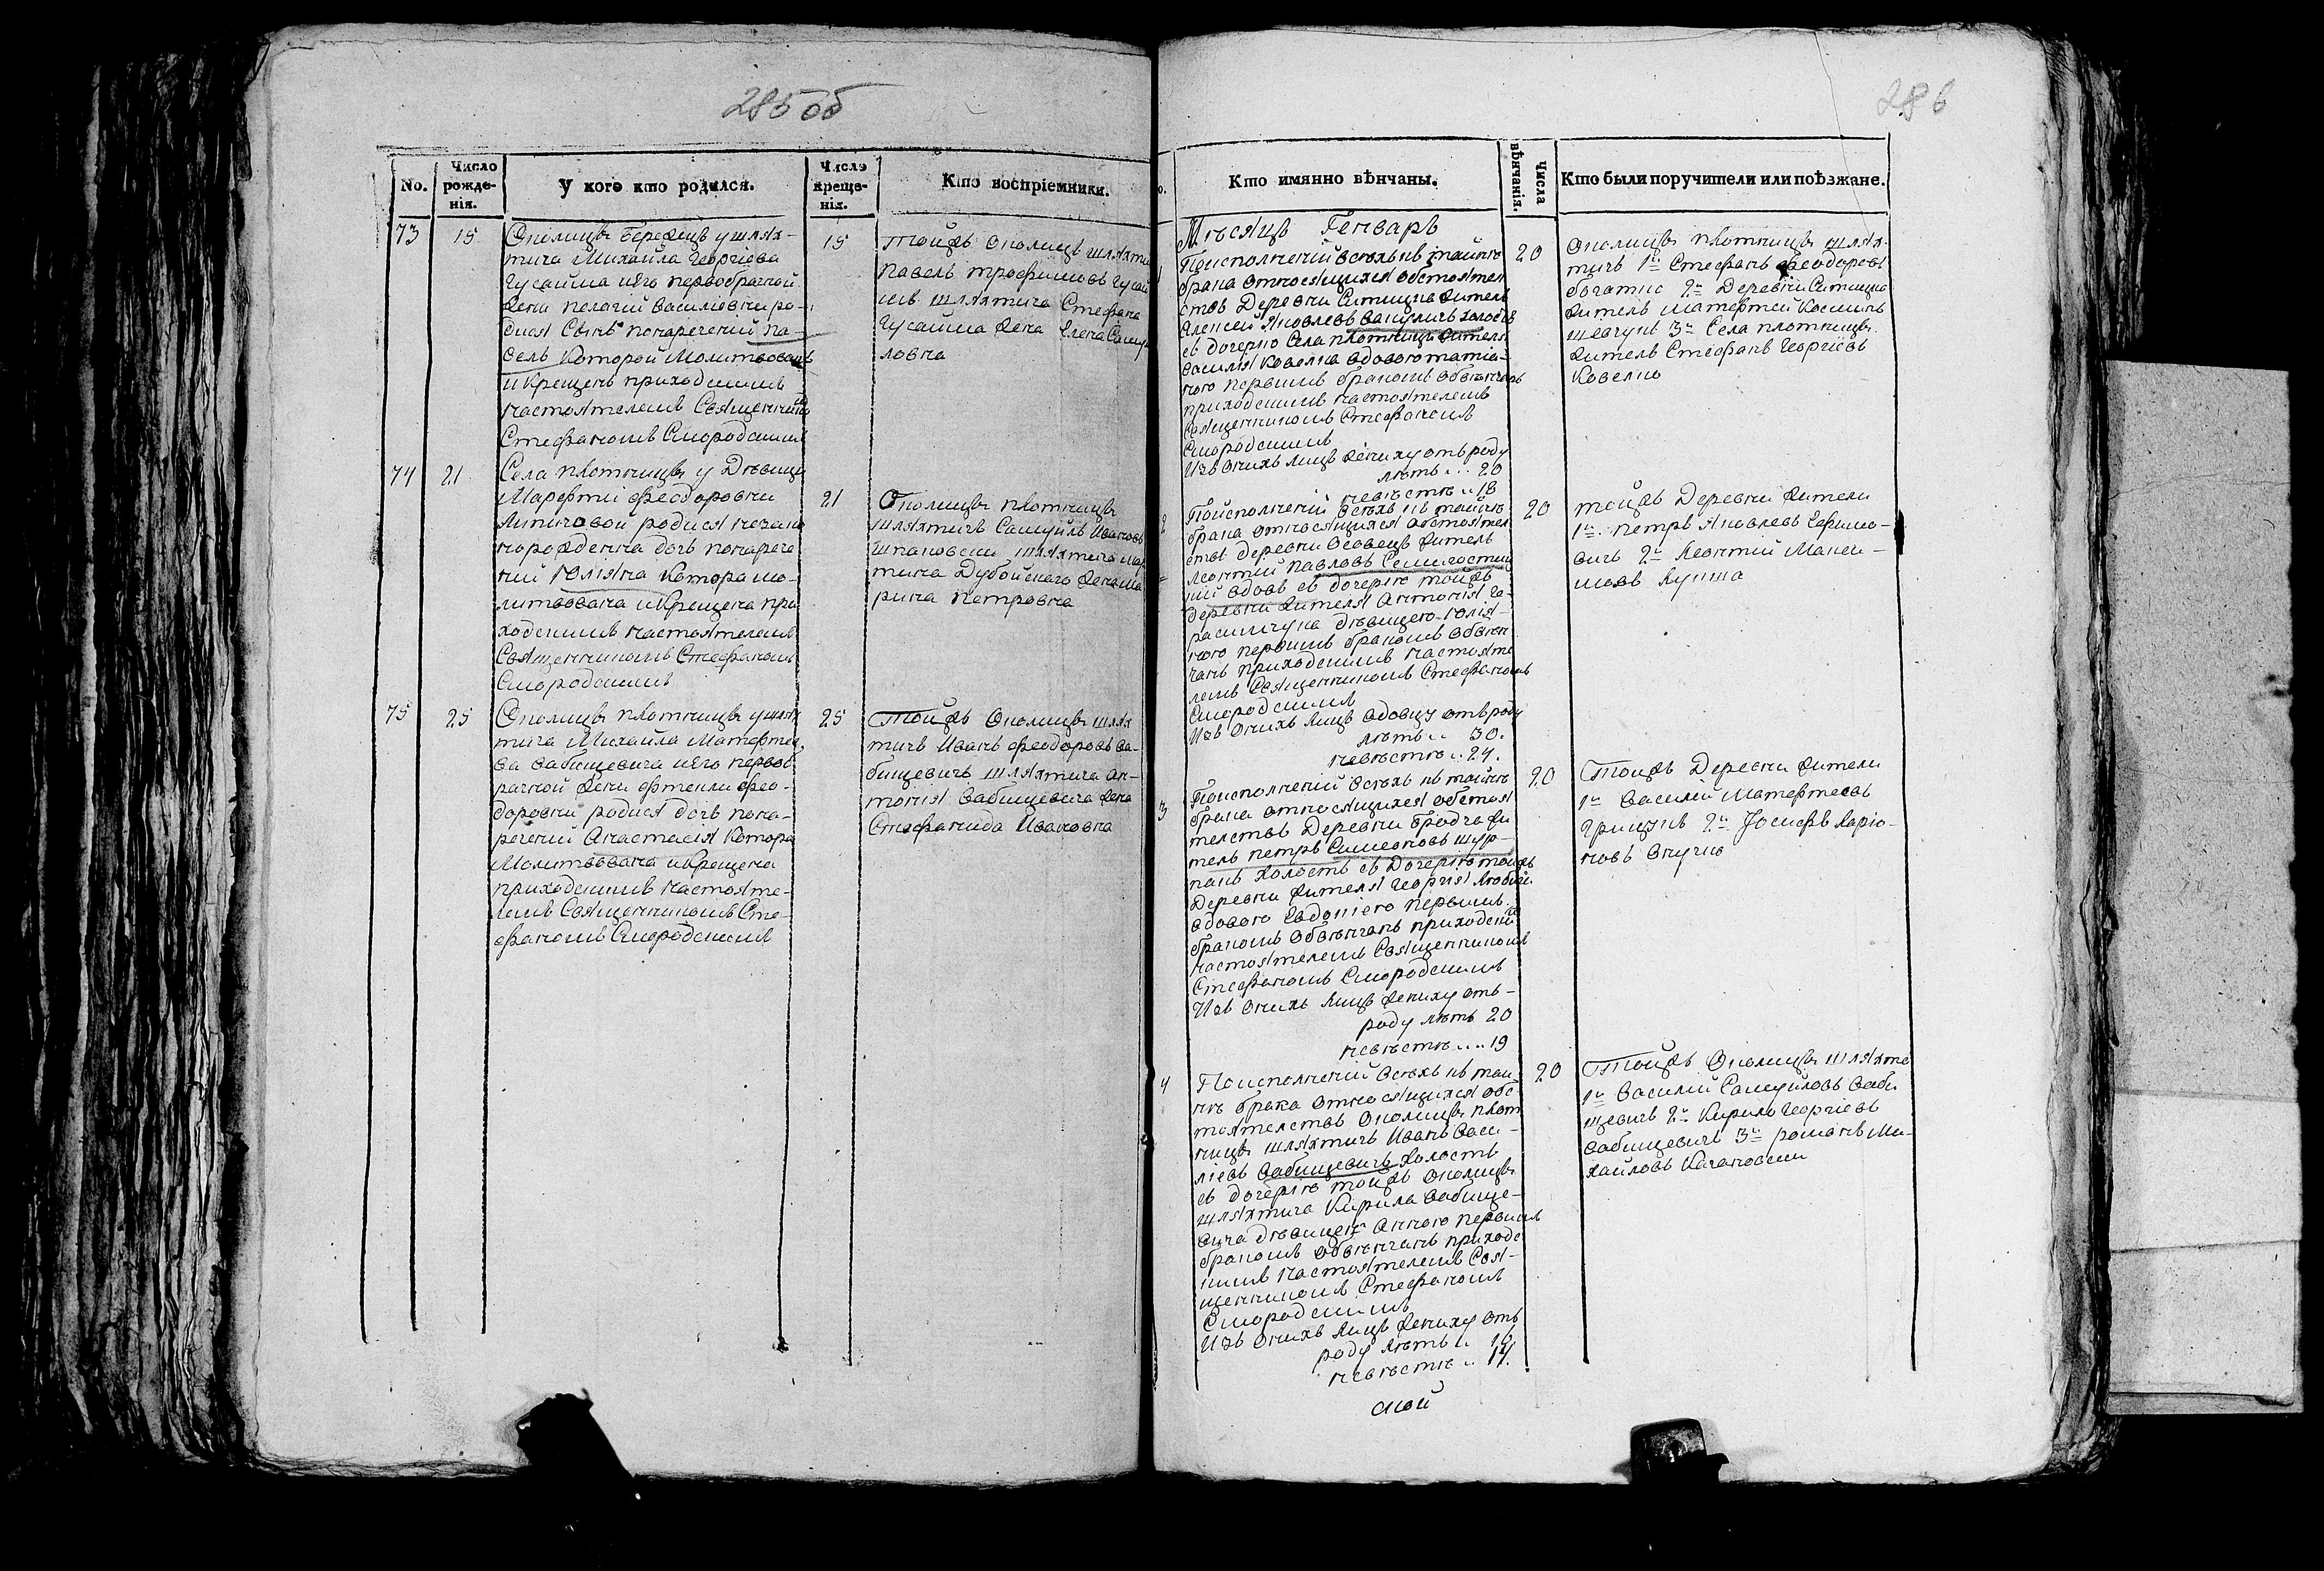 285 об
No.
Число рожде- нія.
У кого кто родился.
Число креще- нія.
Кто воспріемники.
73
15
Околицы Бережцъ у шлях-
тича Михайла Георгіева
Гусайма и его первобрачной
жени Пелагіи Василіовни ро-
дися Сынъ понареченіи Па-
велъ Которой Молитвованъ
и Крещенъ приходскимъ
настоятелемъ Священникомъ
Стефаномъ Смородскимъ
15
Тойжъ Околицы шляхти
Павелъ Трофимовъ
шляхтича Стефана
Гусайма жена Елена
ловна
74
21
Села Плотницы у Дѣвицы
Марфти Феодоровни
родися незако
норожденна дочь понарече
ніи Юліяна Котора мо-
литвована и Крещена при
ходскимъ настоятелемъ
Священникомъ Стефаномъ
Смородскимъ
21
Околицы Плотницы
шляхтичъ Самуилъ Ивановъ
Шпаковски шляхтича Мар
тина Дубойскаго жена Ма
рина Петровна
75
25
Околицы Плотницы у шлях
тича Михайла Матефтее
ва Вабищевича и его перво
рачной жени Фтекли Фео-
доровни родися дочь пона-
реченіи Анастасія Котора
Молитвована и Крещена
приходскимъ настояте-
лемъ Священникомъ Сте-
фаномъ Смородскимъ
25
Тойжъ Околицы шлях
тичъ Иванъ Феодоровъ Ва-
бищевичъ шляхтича Ан-
тонія Вабищевича жена
Стефанида Ивановна
286
Кто имянно вѣнчаны.
Числа вѣнчанія.
Кто были поручители или поѣзжане.
Мѣсяцъ Генваръ
По исполненіи всѣхъ къ тайнѣ
брака относящихся обстоятел
ствъ Деревни Ситицка житель
Алексей Яковлевъ Вакуличъ холостъ
съ дочерію Села Плотницы жителя
Василія Ковелка вдовою Татіа-
ною первымъ бракомъ обвѣнчанъ
приходскимъ настоятелемъ
Священникомъ Стефаномъ
Смородскимъ
Изъ онихъ лицъ жениху отъ роду
лѣтъ .. 20
невѣстѣ .. 18
20
Околицы Плотницы шлях-
тичъ 1й Стефанъ Феодоровъ
Богатко 2й Деревни Ситицка
житель Матефтей Косминъ
Шевчукъ 3й Села Плотницы
житель Стефанъ Георгіевъ
Ковелко
2
По исполненіи всѣхъ къ тайнѣ
брака относящихся обстоятел
ствъ Деревни Осовецъ житель
Леонтий Павловъ
вдовъ съ дочерію тойжъ
деревни жителя Антонія Ге-
расимчука дѣвицею Юлія-
ною первымъ бракомъ обвѣн
чанъ приходскимъ настояте
лемъ Священникомъ Стефаномъ
Смородскимъ
Изъ онихъ лицъ вдовцу отъ роду
лѣтъ .. 30.
невѣстѣ .. 24.
20
Тойжъ Деревни жители
1й Петръ Яковлевъ Ефимо-
вичъ 2й Леонтий Макси-
мовъ Купша
3
По исполненіи всѣхъ къ тайнѣ
брака относящихся обстоя
телствъ Деревни Бродча жи
тель Петръ Симеоновъ
холостъ съ дочерію тойжъ
Деревни жителя Георгія
вдовою Евдокіею первымъ
бракомъ обвѣнчанъ приходским
настоятелемъ Священникомъ
Стефаномъ Смородскимъ
Изъ онихъ лицъ жениху отъ-
роду лѣтъ 20
невѣстѣ .... 19
20
Тойжъ Деревни жители
1й Василій Матефтеевъ
Грицукъ 2й Іосифъ Ларіо-
новъ
4
По исполненіи всѣхъ къ тай-
нѣ брака относящихся обс-
тоятелствъ Околицы Плот
ницы шляхтичъ Иванъ Васи-
ліевъ Вабищевичъ холостъ
съ дочерію тойжъ околицы
шляхтича Кирила Вабище-
вича дѣвицею Анною первимъ
бракомъ обвѣнчанъ приходс
кимъ настоятелемъ Свя-
щенникомъ Стефаномъ
Смородскимъ
Изъ онихъ лицъ жениху отъ
роду лѣтъ ..
невѣстѣ .. 17.
20
Тойжъ Околицы шляхте
1й Василий Самуйловъ Ваби
щевичъ 2й Кирило Георгіевъ
Вабищевичъ 3й Романъ Ми-
хайловъ Качановски